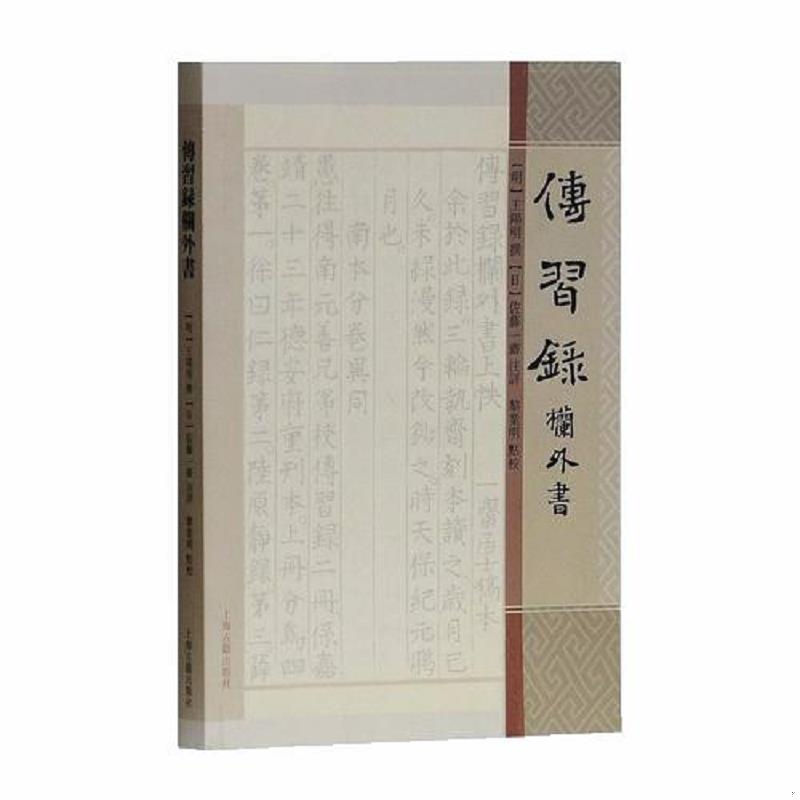 傳習録
欄外書
【明】王陽明 撰 【日】佐藤一齋 注評 黎業明 點校
傳習録欄外書上帙 一齋居士稿本
余於此録。三輪執齋刻本讀之。歲月已
久。未錄漫然。今改鈔之。時天保紀元鵬
月也。
南本分卷異同
愚往得南元善兄弟校傳習録二册。係嘉
靖二十三年德安府重刊本。上册分爲四
卷。第一。徐曰仁録。第二。陸原静録。第三。薛
上海古籍出版社
傳習録欄外書
【明】王陽明 撰 【日】佐藤一齋 注評 黎業明 點校
上海古籍出版社